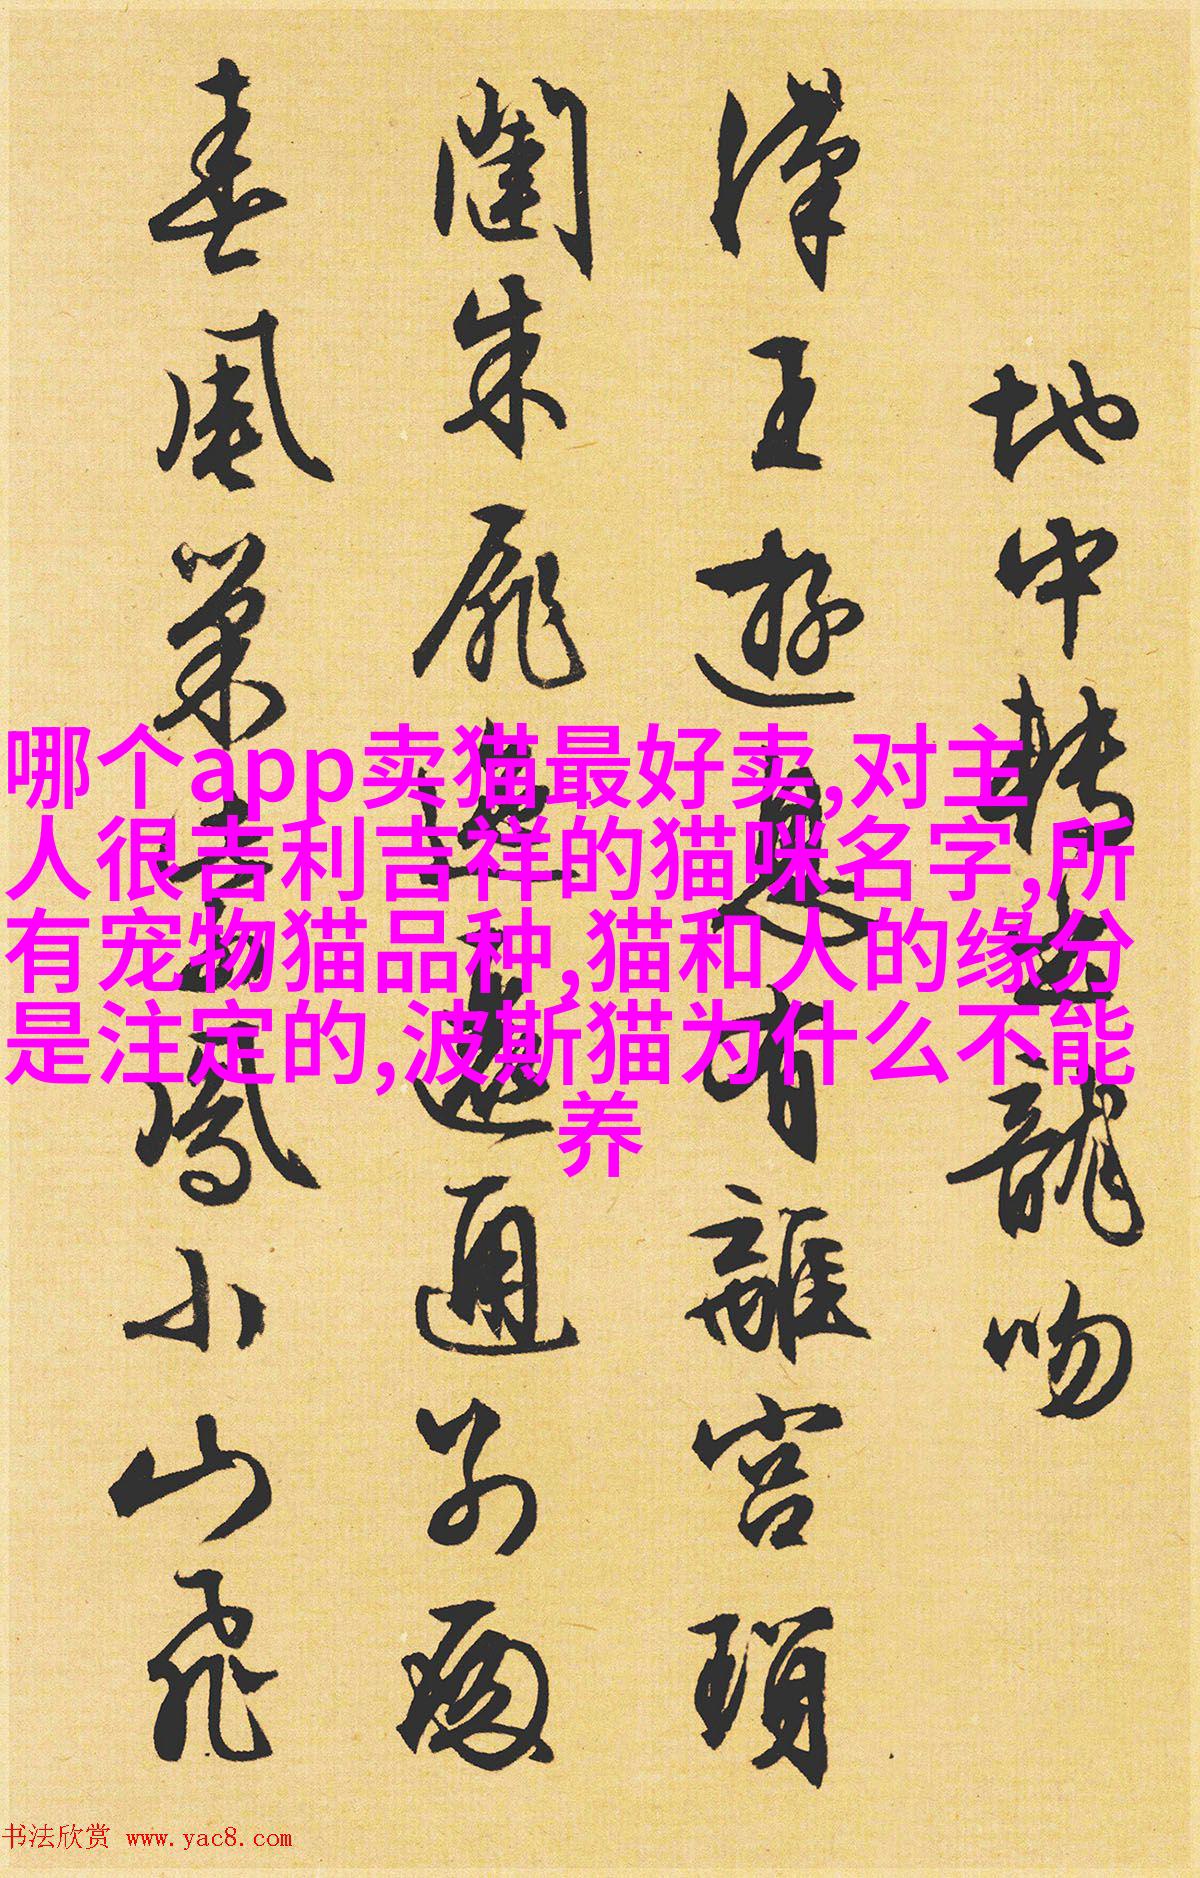 地中轉龍吻
漢王遊息有離宮瑣
闥朱扉通
春風巢鳳小山飛
哪个app卖猫最好卖,对主
人很吉利吉祥的猫咪名字,所
有宠物猫品种,猫和人的缘分
是注定的,波斯猫为什么不能
养
书法欣赏 www.yac8.com